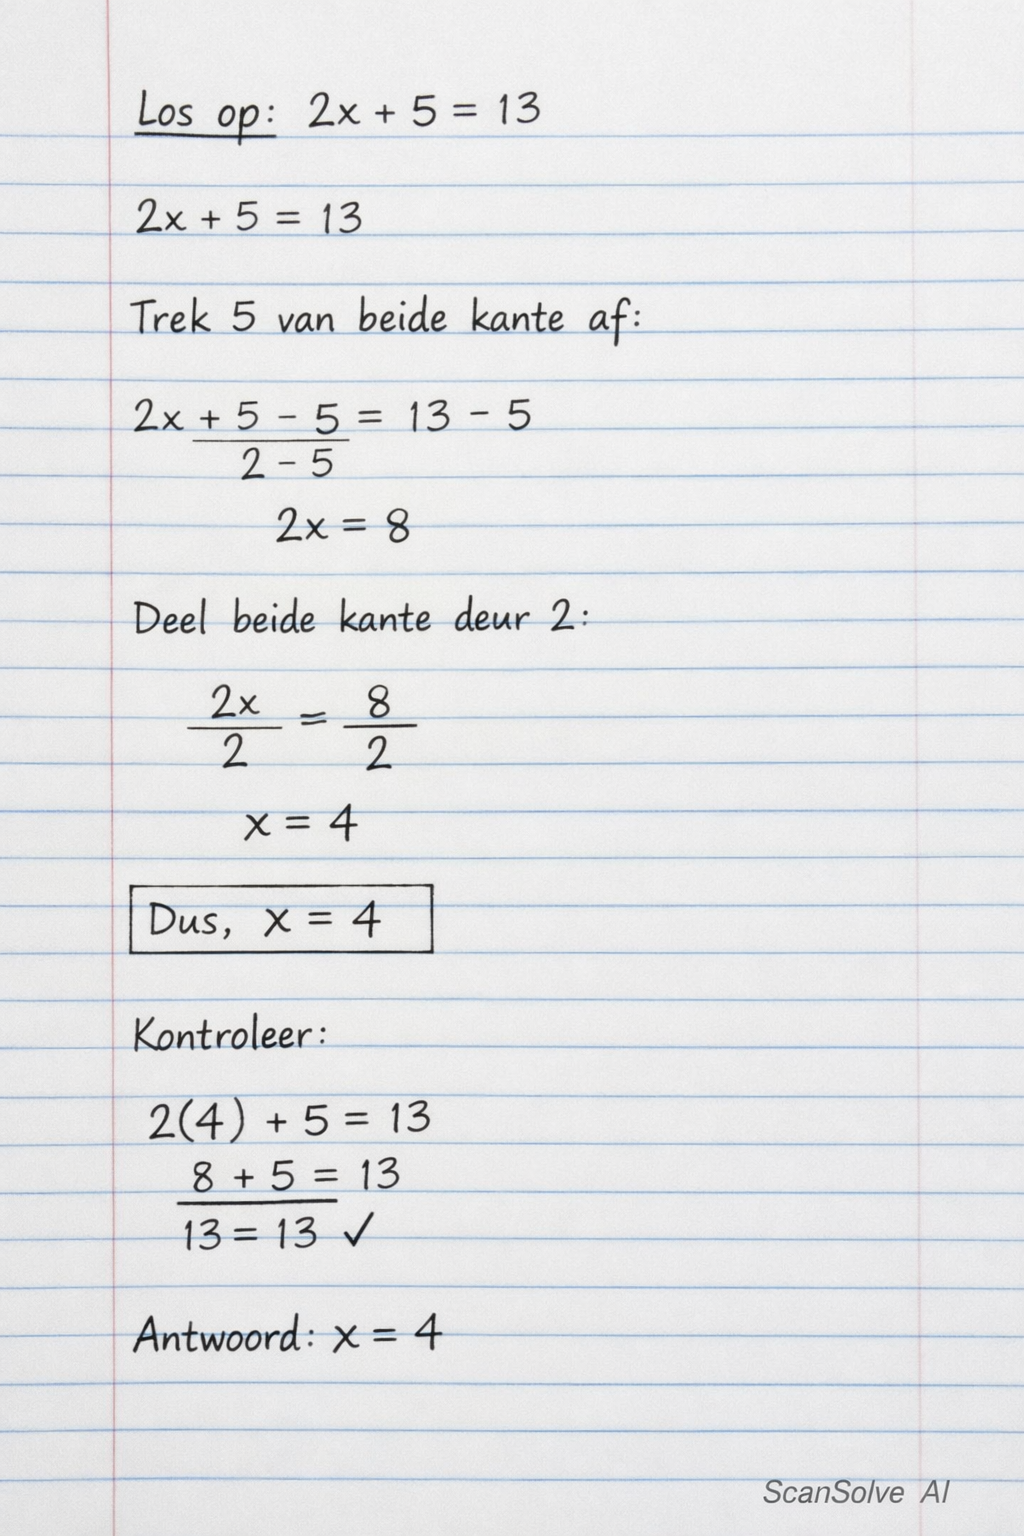 Los op: 2x + 5 = 13
2x + 5 = 13
Trek 5 van beide kante af:
2x + 5 - 5 = 13 - 5
2 - 5
2x = 8
Deel beide kante deur 2:
2x/2 = 8/2
x = 4
Dus, x = 4
Kontroleer:
2(4) + 5 = 13
8 + 5 = 13
13 = 13 ✓
Antwoord: x = 4
ScanSolve AI